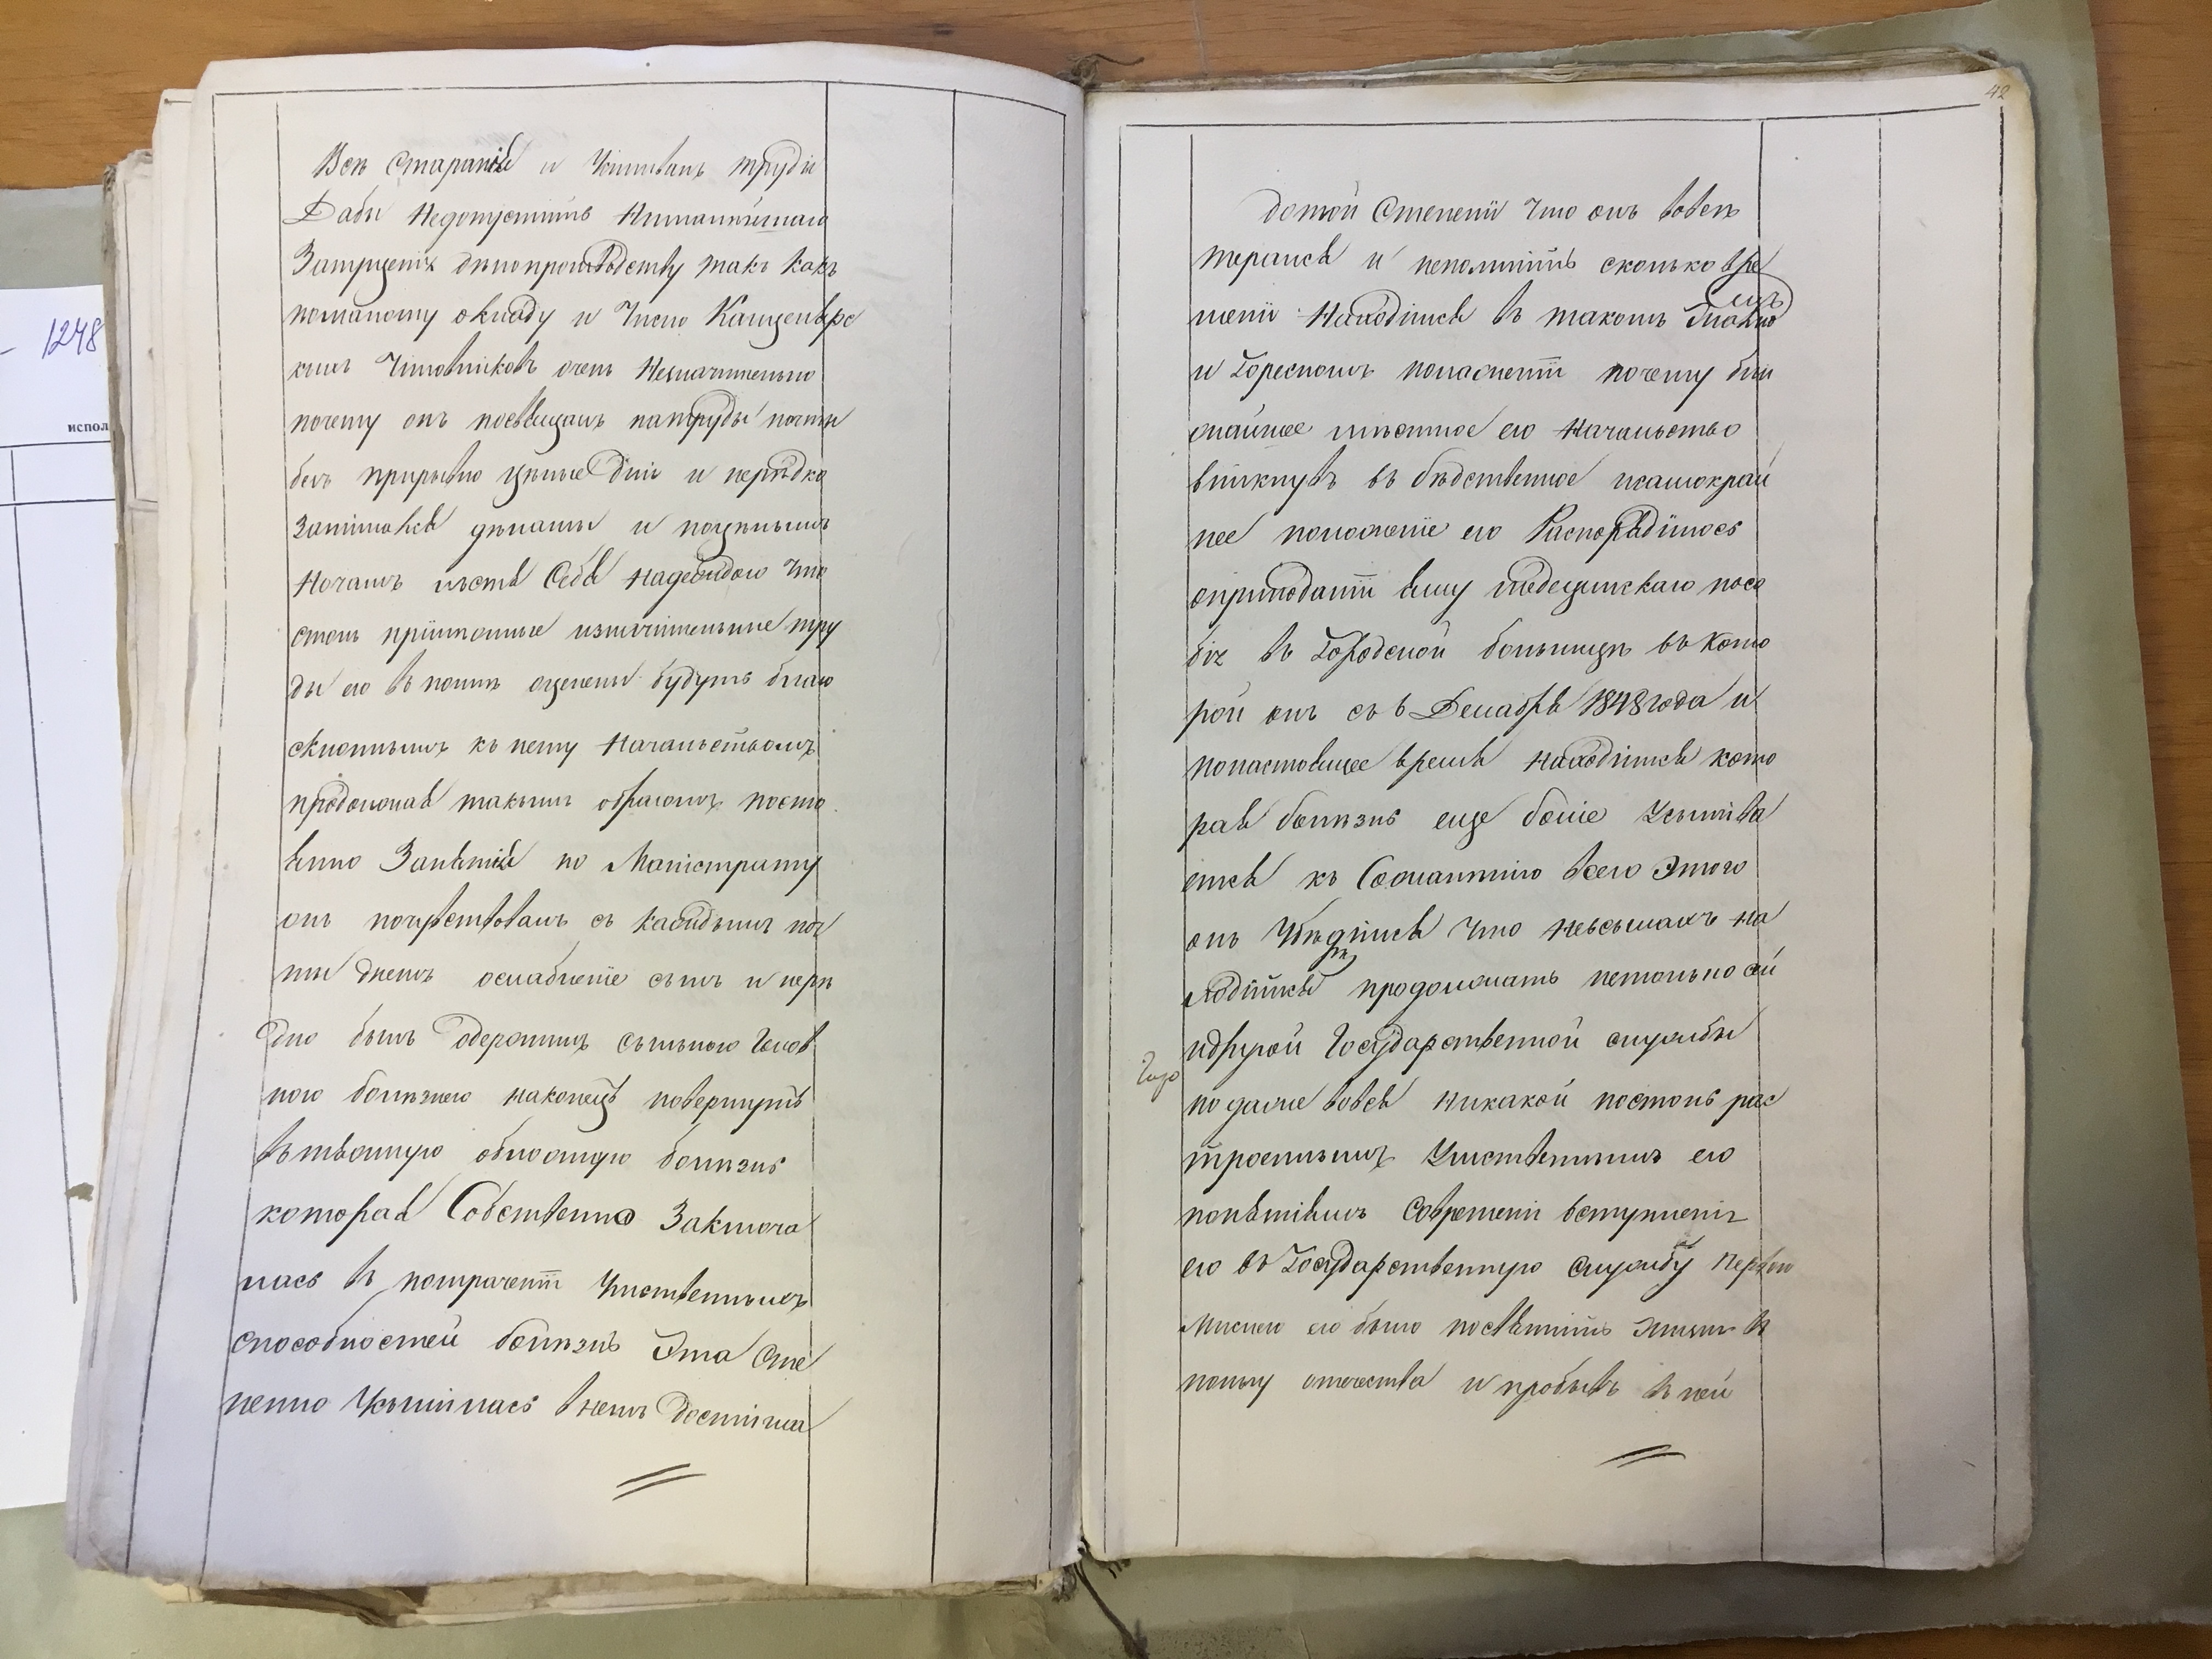 1248
испол
Все старанiя и Усиливалъ труды
Дабы недопустить нималѣйшаго
Запущенiя дѣлопроизводству такъ какъ
помалому окладу и число Канцелярс
кихъ Чиновниковъ очень Незначительно
почему онъ посвящалъ натруды почти
безъ прирывно цѣлые дни и нерѣдко
Занимался дѣлами и поцѣлымъ
Ночамъ льстя Себя надеждою что
столь прiлежные изначительные тру
ды его въ полнѣ оценены будутъ благо
склоннымъ къ нему Начальствомъ
продолжая такимъ образомъ посто
янно Занятiя по Магистрату
онъ почувствовалъ съ каждымъ поч
ти днемъ ослабленiе силъ и нерѣ
дко былъ одержимъ сильною Голов
ною болѣзнею наконецъ
въ тяжкую болѣзнь
которая Собственно Заключа
лась въ потраченiи Умственныхъ
способностей болѣзнь Эта Сте
пенно Усилилась внемъ достигла
42
дотой Степени Что онъ вовсе
терялся и непомнитъ сколько вре
мени Находился въ такомъ
и Горестномъ положенiи почему бли
жайшее мѣстное его Начальство
вникнувъ въ бѣдственное исамокрай
нее положенiе его Распорядилось
опреподанiи ему медецинскаго посо
бiя въ Городской больницѣ въ Кото
рой онъ съ 6 Декабря 1848 года и
понастоящее время находится кото
рая болѣзнь еще болiе Усилива
ется къ Сожалѣнiю всего Этого
онъ Убѣдился Что невсилахъ на
ходится продолжать нетолько сей
идругой Государственной службы
но даже вовся никакой постоль рас
троеннымъ Умственнымъ его
понятiямъ Современи вступленiя
его въ Государственную службу перьвою
Мыслею его было посвятить жизнь въ
пользу отечества и пробывъ въ ней